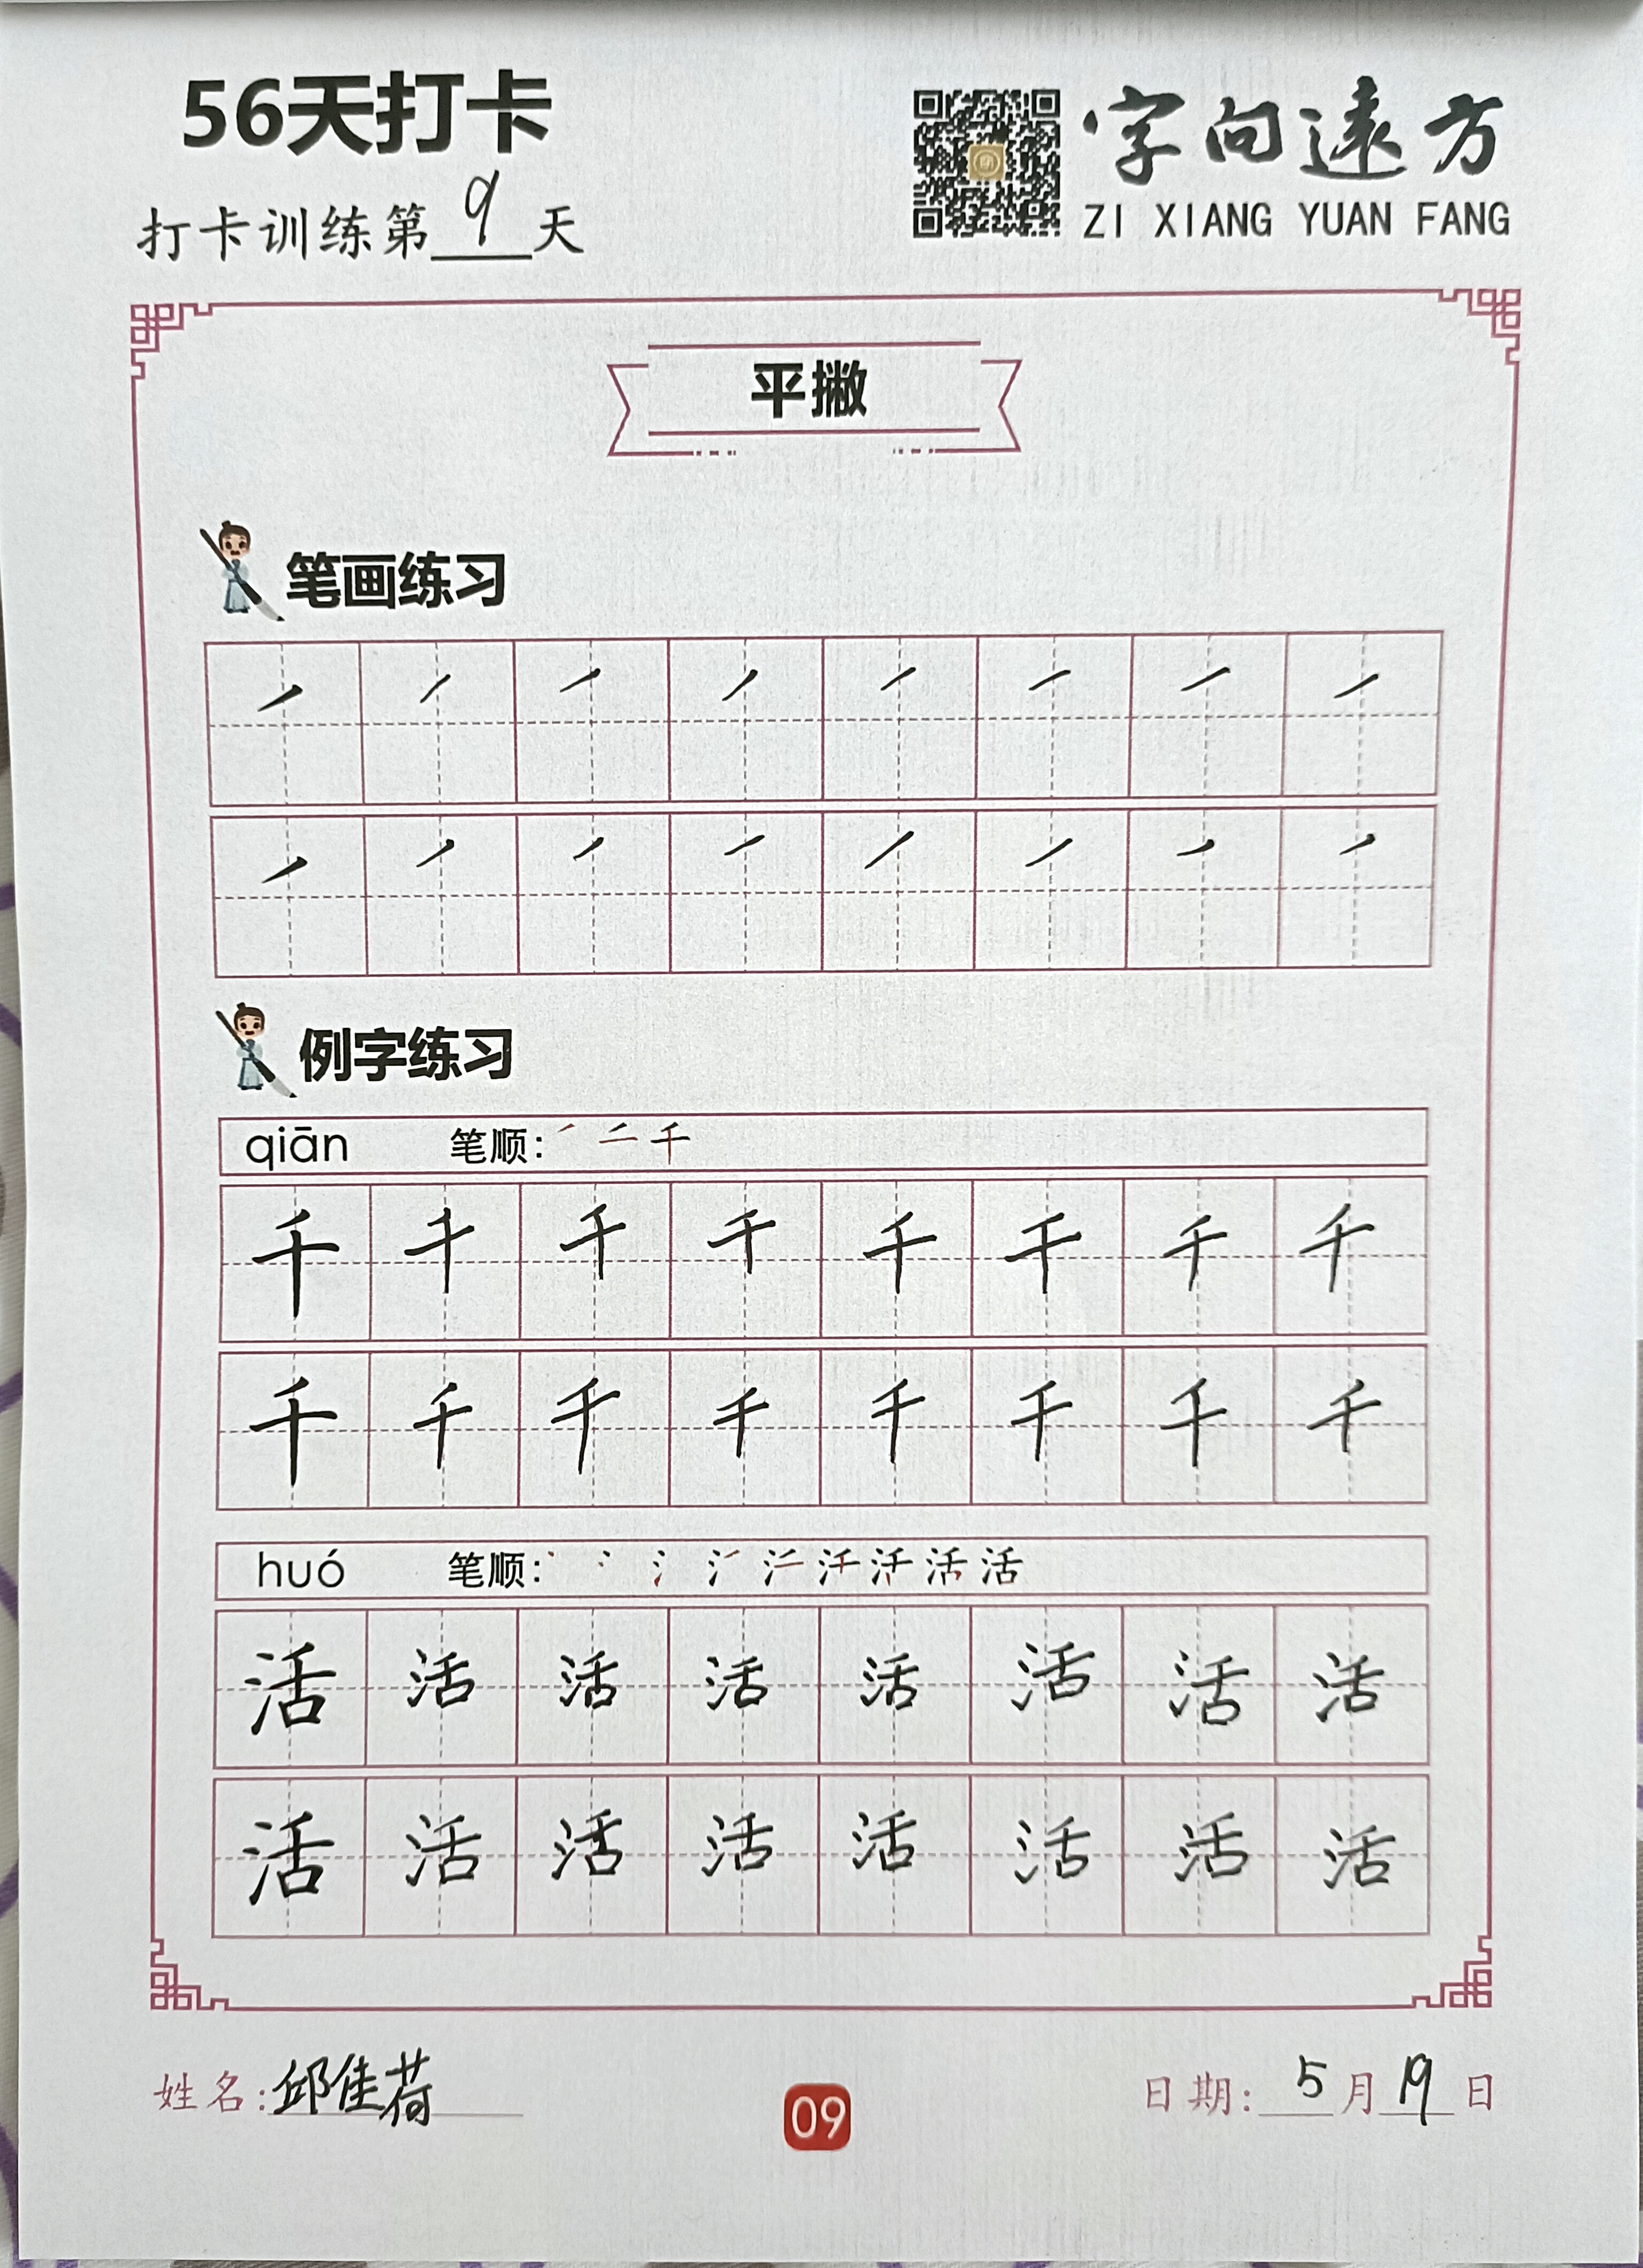 56天打卡
字向遠方
ZI XIANG YUAN FANG
打卡训练第9天
平撇
笔画练习
例字练习
qiān 笔顺: 千
千 千 千 千 千 千 千 千
千 千 千 千 千 千 千 千
huó 笔顺: 活
活 活 活 活 活 活 活 活
活 活 活 活 活 活 活 活
姓名:邱佳荷
09
日期:5月19日